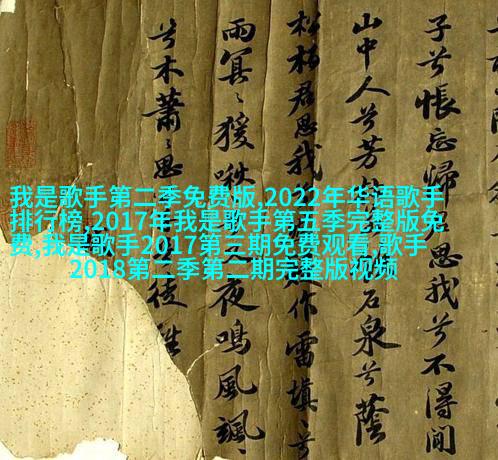 我是歌手第二季免费版,2022年华语歌手
排行榜,2017年我是歌手第五季完整版免
费,我是歌手2017第三期免费观看,歌手
2018第二季第二期完整版视频
子兮悵忘歸 思我兮不得閒
山中人兮芳 石泉兮蔭
松柏君思我 作雷填〻兮
雨冥〻猨啾 夜鳴風颯〻
兮木蕭〻思 徒